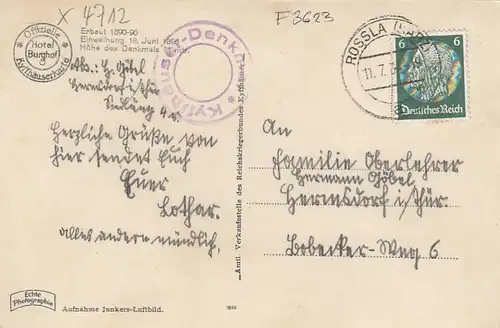 X 4712
F 3623
Offizielle
Hotel
Burghof
Kyffhäuserkarte
Erbaut 1890-96
Einweihung 18. Juni 1896
Höhe des Denkmals 81 mtr.
Kyffhäuser-Denkmal
ROSSLA
11. 7.
6 6
Deutsches Reich
Abs.: H. Göbel
Hermsdorf i/Thür
Herzliche Grüße von
hier sendet Euch
Euer
Lothar.
alles andere mündlich,
An
Familie Oberlehrer
Hermann Göbel
Hermsdorf i/Thür.
Bobecker-Weg 6
Amtl. Verkaufsstelle des Reichskriegerbundes Kyffhäuser
Echte
Photographie
Aufnahme Junkers-Luftbild.